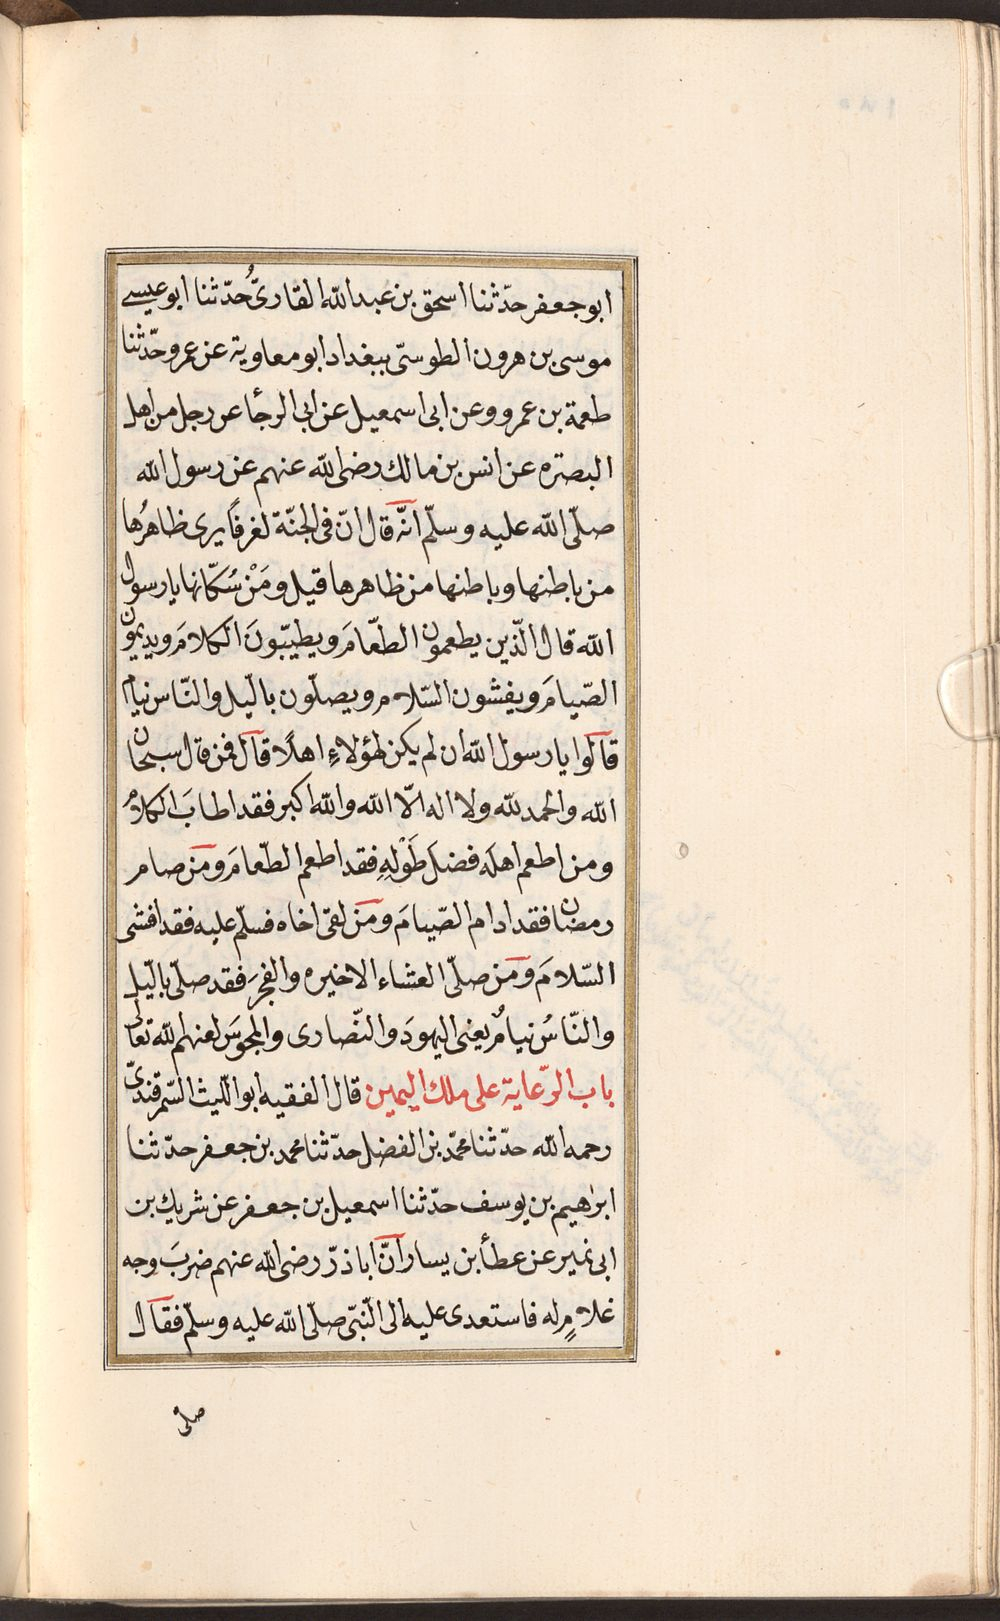 ابو جعفر حدّثنا اسحق بن عبد الله القاریُّ حدّثنا ابو عیسے
موسی بن هرون الطوسیّ ببغداد ابو معاویة عن عمرو حدّثنا
طعمة بن عمرو وعن ابی اسمعیل عن ابی الرجأ عن رجل من اهل
البصتره عن انس بن مالك رضی الله عنهم عن رسول الله
صلّی الله علیه وسلّم انّه قال انّ فی الجنّة لغرفاً یری ظاهرُها
من باطنها وباطنها من ظاهرها قیل ومَنْ سُكّانها یا رسول
الله قال الّذین یطعمون الطّعامَ ویطیّبونَ الكلامَ ویدیمون
الصّیامَ ویفشون السّلام ویصلّون بالّیل والنّاس نیام
قالوا یا رسول الله ان لم یكن لهؤلاءِ اهلًا قال فمن قال سبحان
الله والحمد لله ولا اله الّا الله والله اكبر فقد اطابَ الكلامُ
ومن اطعم اهلَه فضلَ طَوْلِهِ فقد اطعم الطّعامَ ومَن صام
رمضان فقد ادام الصّیامَ ومَن لقی اخاه فسلّم علیه فقد افشی
السّلامَ ومَن صلّی العشاء الاخیره والفجرَ فقد صلّی بالّیل
والنّاسُ نیامٌ یعنی الیهودَ والنّصاری والمجوسَ لعنهم الله تعالی
باب الرّعایة علی ملك الیمین قال الفقیه ابو اللّیث السّمرقندیّ
رحمه الله حدّثنا محمّد بن الفضل حدّثنا محمد بن جعفر حدّثنا
ابرٰهیم بن یوسف حدّثنا اسمعیل بن جعفر عن شریك بن
ابی نمیر عن عطأ بن یسار انّ اباذرّ رضی الله عنهم ضربَ وجه
غلامٍ له فاستعدی علیه الی النّبیّ صلّی الله علیه وسلّم فقال
صلّی